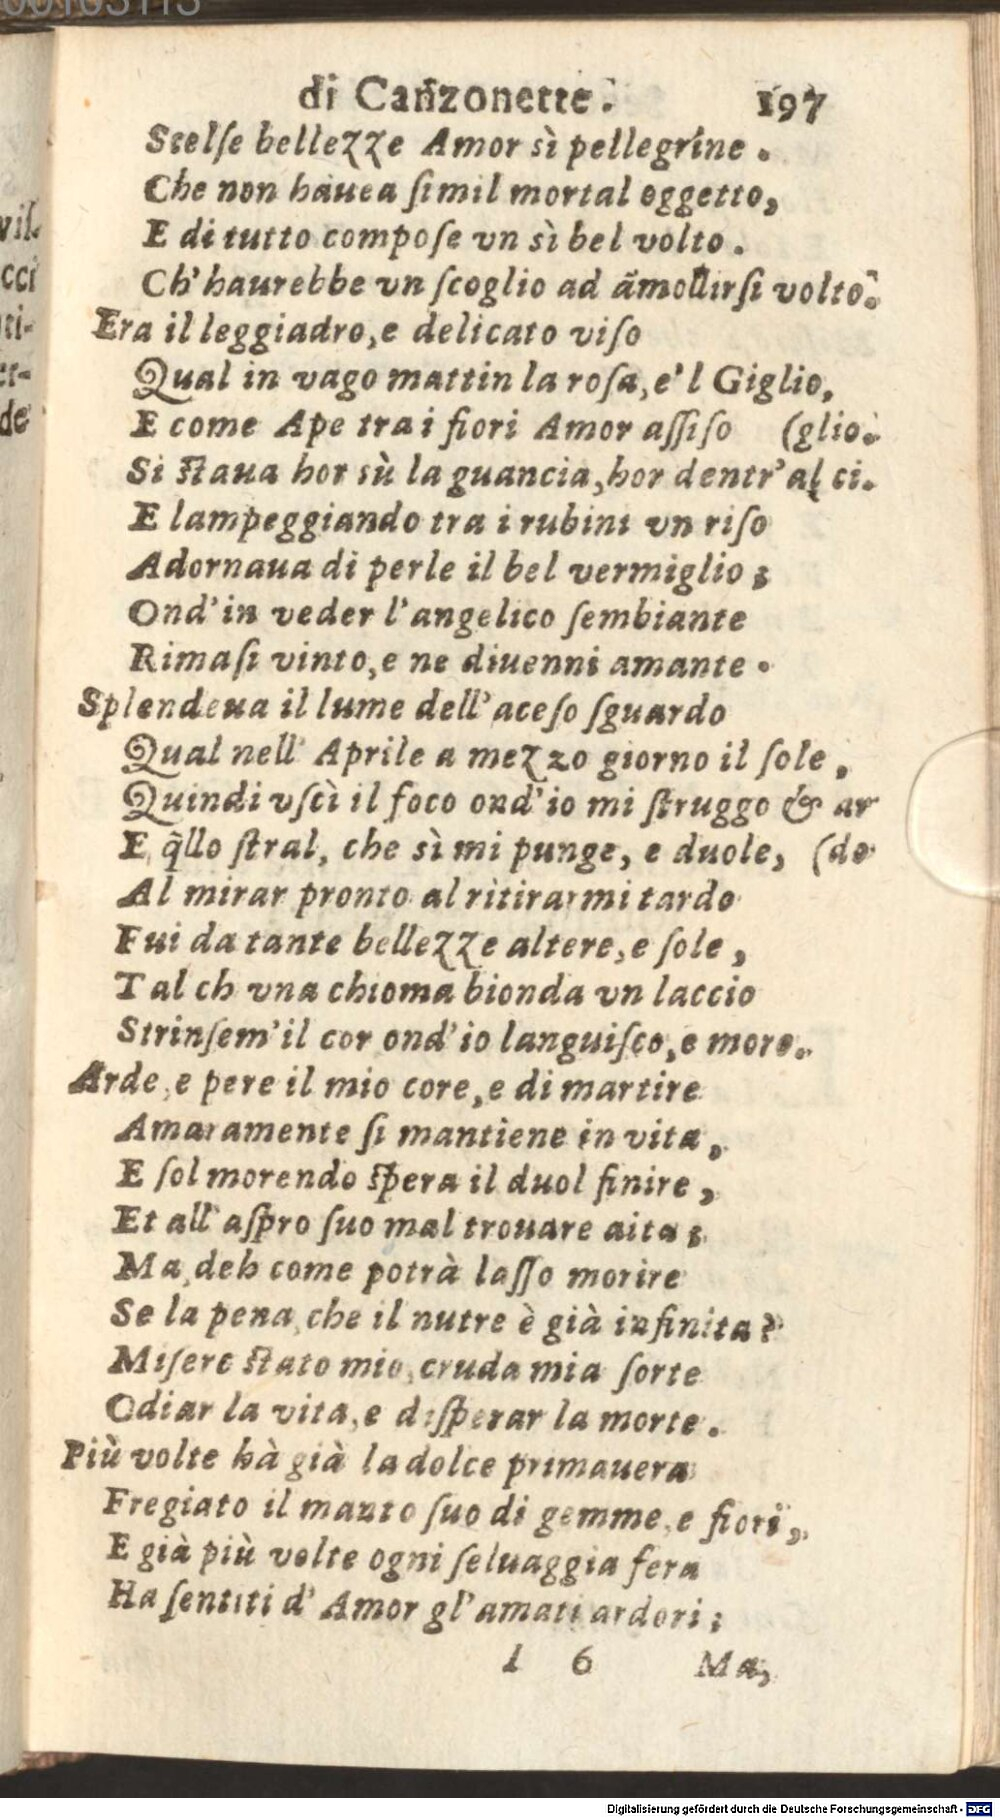 di Cañzonette. 197
Scelse bellezze Amor sì pellegrine.
Che non hauea simil mortal oggetto,
E di tutto compose vn sì bel volto.
Ch'haurebbe vn scoglio ad ãmollirsi volto.
Era il leggiadro, e delicato viso
Qual in vago mattin la rosa, e'l Giglio,
E come Ape tra i fiori Amor assiso (glio.
Si staua hor sù la guancia, hor dentr'al ci.
E lampeggiando tra i rubini vn riso
Adornaua di perle il bel vermiglio;
Ond'in veder l'angelico sembiante
Rimasi vinto, e ne diuenni amante.
Splendeua il lume dell'aceso sguardo
Qual nell'Aprile a mezzo giorno il sole,
Quindi vscì il foco ond'io mi struggo & ar
E q̃llo stral, che sì mi punge, e duole, (do
Al mirar pronto al ritirarmi tardo
Fui da tante bellezze altere, e sole,
Tal ch vna chioma bionda vn laccio
Strinsem'il cor ond'io languisco, e moro.
Arde, e pere il mio core, e di martire
Amaramente si mantiene in vita,
E sol morendo spera il duol finire,
Et all'aspro suo mal trouare aita;
Ma, deh come potrà lasso morire
Se la pena, che il nutre è già infinita?
Misero stato mio, cruda mia sorte
Odiar la vita, e disperar la morte.
Più volte hà già la dolce primauera
Fregiato il manto suo di gemme, e fiori,
E già più volte ogni seluaggia fera
Ha sentiti d'Amor gl'amati ardori;
I 6 Ma,
Digitalisierung gefördert durch die Deutsche Forschungsgemeinschaft - DFG